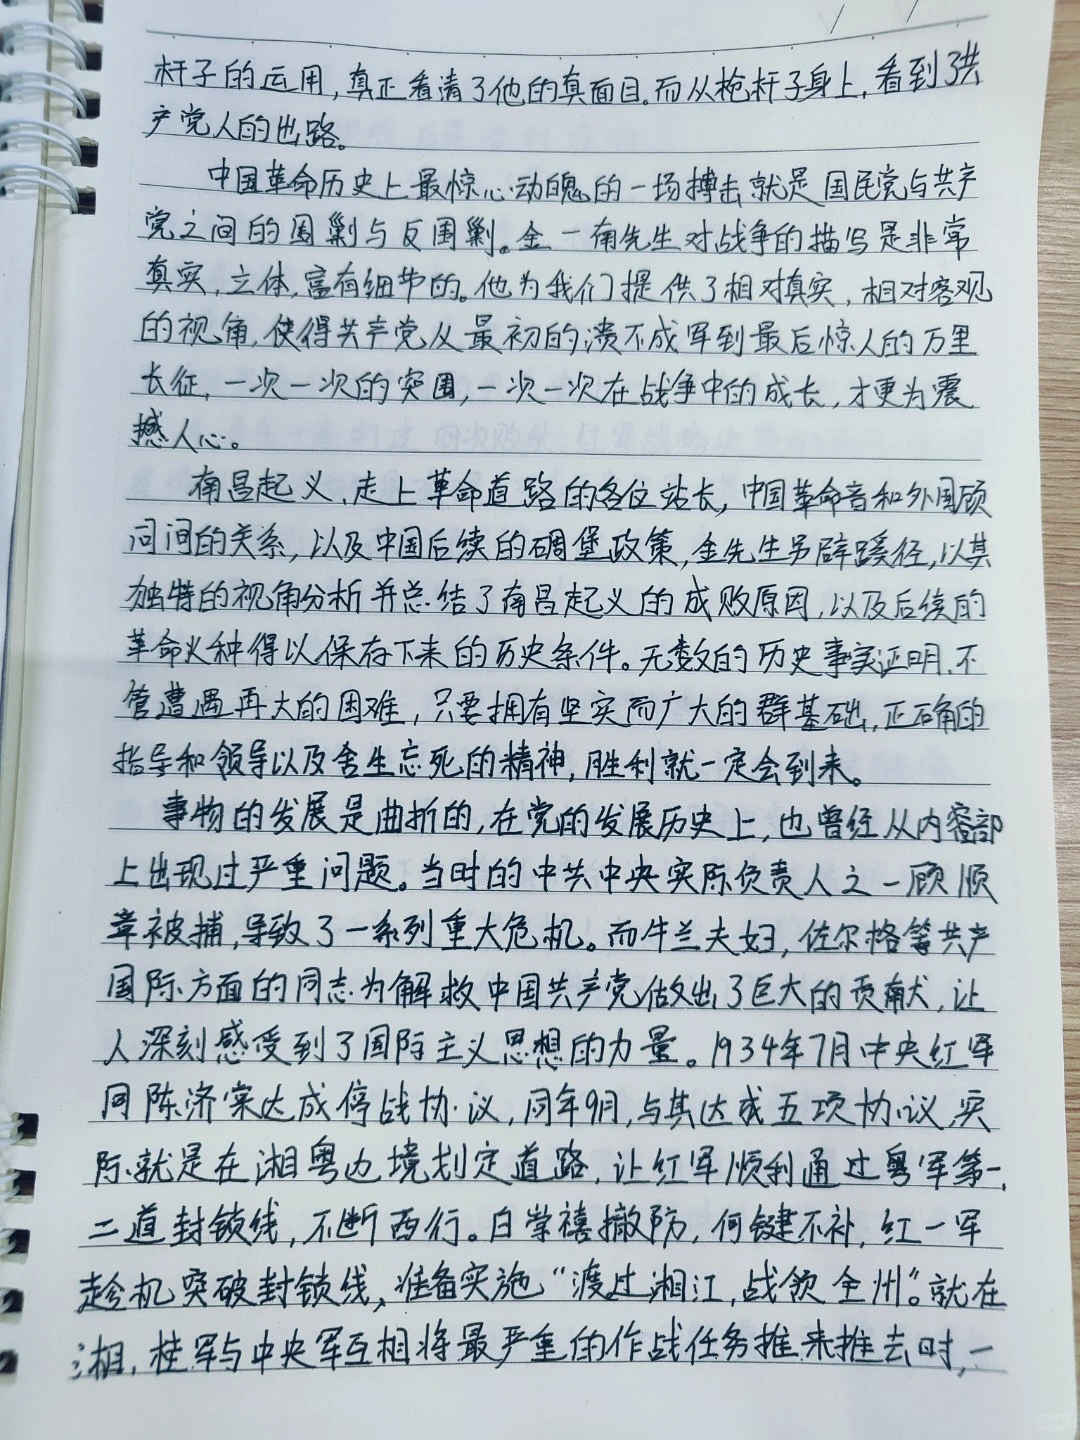 杆子的运用，真正看清了他的真面目。而从枪杆子身上，看到了共
产党人的出路。
中国革命历史上最惊心动魄的一场搏击就是国民党与共产
党之间的围剿与反围剿。金一南先生对战争的描写是非常
真实，立体，富有细节的。他为我们提供了相对真实，相对客观
的视角，使得共产党从最初的溃不成军到最后惊人的万里
长征，一次一次的突围，一次一次在战争中的成长，才更为震
撼人心。
南昌起义、走上革命道路的各位站长，中国革命者和外国顾
问间的关系，以及中国后续的碉堡政策，金先生另辟蹊径，以其
独特的视角分析并总结了南昌起义的成败原因，以及后续的
革命火种得以保存下来的历史条件。无数的历史事实证明，不
管遭遇再大的困难，只要拥有坚实而广大的群基础，正确的
指导和领导以及舍生忘死的精神，胜利就一定会到来。
事物的发展是曲折的，在党的发展历史上，也曾经从内部
上出现过严重问题。当时的中共中央实际负责人之一顾顺
章被捕，导致了一系列重大危机。而牛兰夫妇，佐尔格等共产
国际方面的同志为解救中国共产党做出了巨大的贡献，让
人深刻感受到了国际主义思想的力量。1934年7月中央红军
同陈济棠达成停战协议，同年9月，与其达成五项协议，实
际就是在湘粤边境划定道路，让红军顺利通过粤军第一，
二道封锁线，不断西行。白崇禧撤防，何键不补，红一军
趁机突破封锁线，准备实施“渡过湘江，战领全州”。就在
湘，桂军与中央军互相将最严重的作战任务推来推去时，一